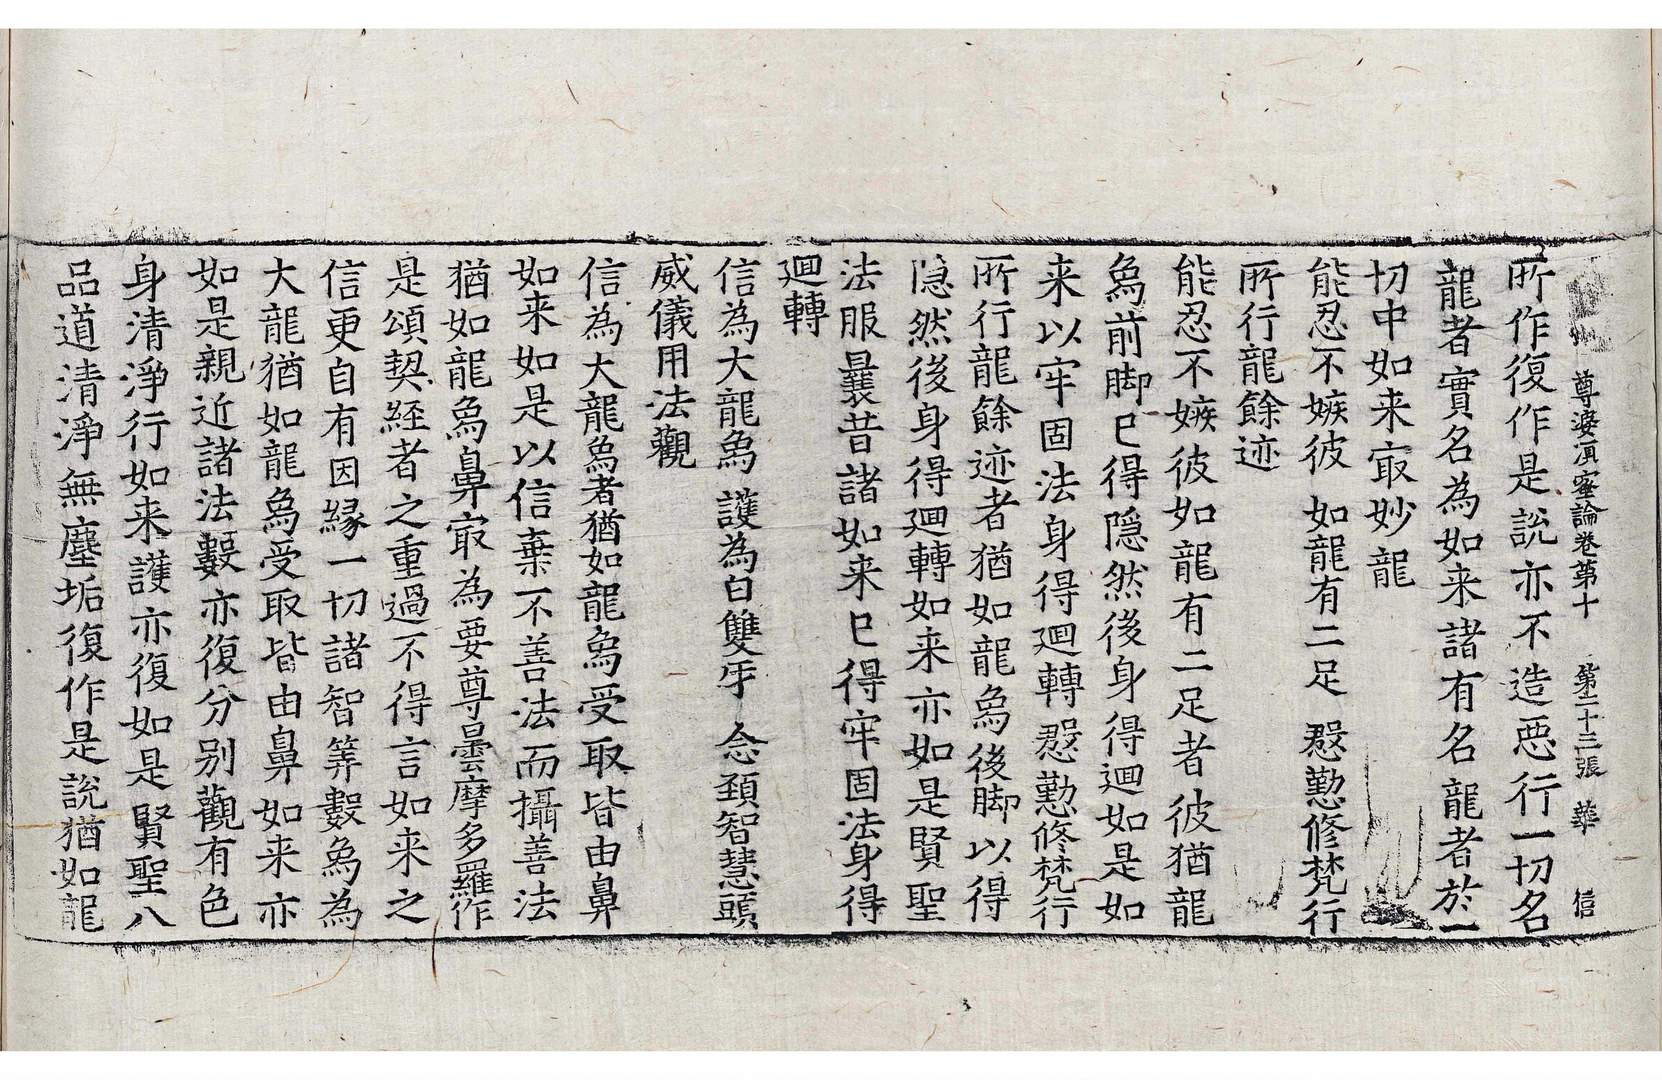 尊婆湏蜜論卷第十 第二十三張 華 信
所作復作是說亦不造惡行一切名
龍者實名為如来諸有名龍者於一
切中如来冣妙龍
能忍不嫉彼 如龍有二足 慇懃修梵行
所行龍餘迹
能忍不嫉彼如龍有二足者彼猶龍
烏前脚已得隱然後身得迴如是如
来以牢固法身得迴轉慇懃修梵行
所行龍餘迹者猶如龍烏後脚以得
隱然後身得迴轉如来亦如是賢聖
法服曩昔諸如来已得牢固法身得
迴轉
信為大龍烏 護為白雙牙 念頚智慧頭
威儀用法觀
信為大龍烏者猶如龍烏受取皆由鼻
如来如是以信棄不善法而攝善法
猶如龍烏鼻冣為要尊曇摩多羅作
是頌契経者之重過不得言如来之
信更自有因緣一切諸智筭數烏為
大龍猶如龍烏受取皆由鼻如来亦
如是親近諸法數亦復分别觀有色
身清淨行如来護亦復如是賢聖八
品道清淨無塵垢復作是說猶如龍